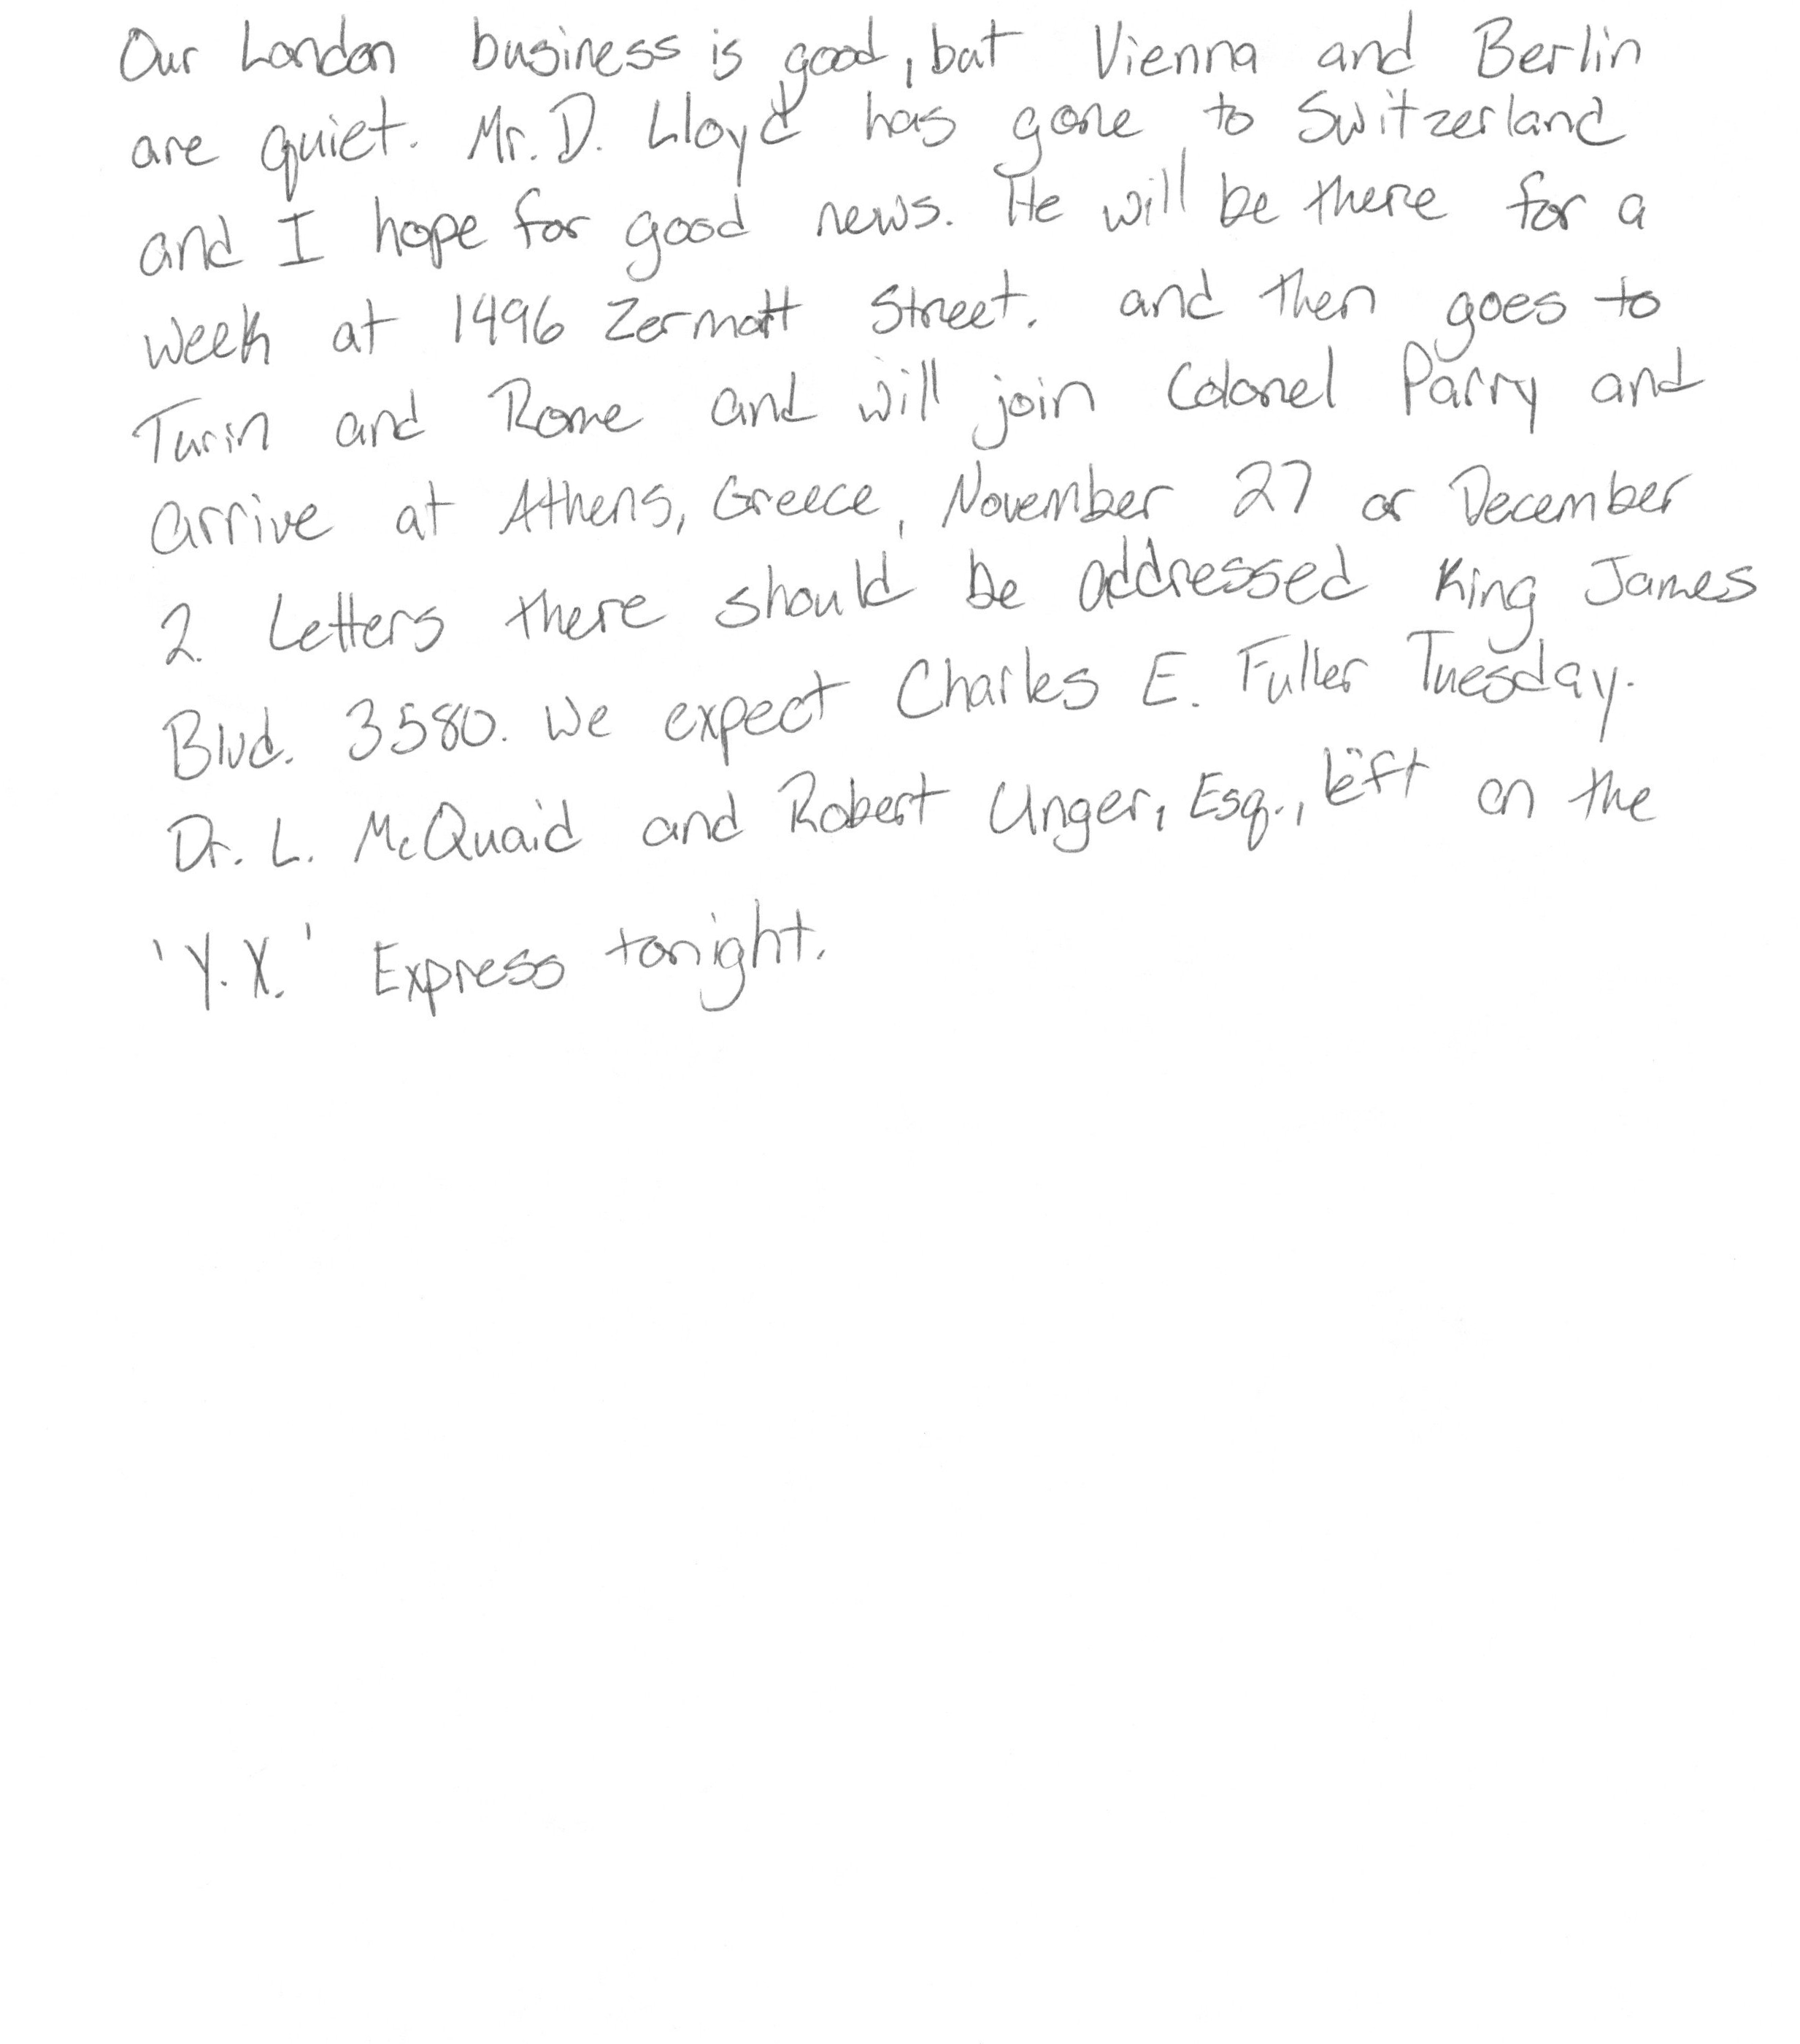 Our London business is good, but Vienna and Berlin
are quiet. Mr. D. Lloyd has gone to Switzerland
and I hope for good news. He will be there for a
week at 1496 Zermatt Street. and then goes to
Turin and Rome and will join Colonel Parry and
arrive at Athens, Greece, November 27 or December
2. Letters there should be addressed King James
Blvd. 3580. We expect Charles E. Fuller Tuesday.
Dr. L. McQuaid and Robert Unger, Esq., left on the
'Y.X.' Express tonight.